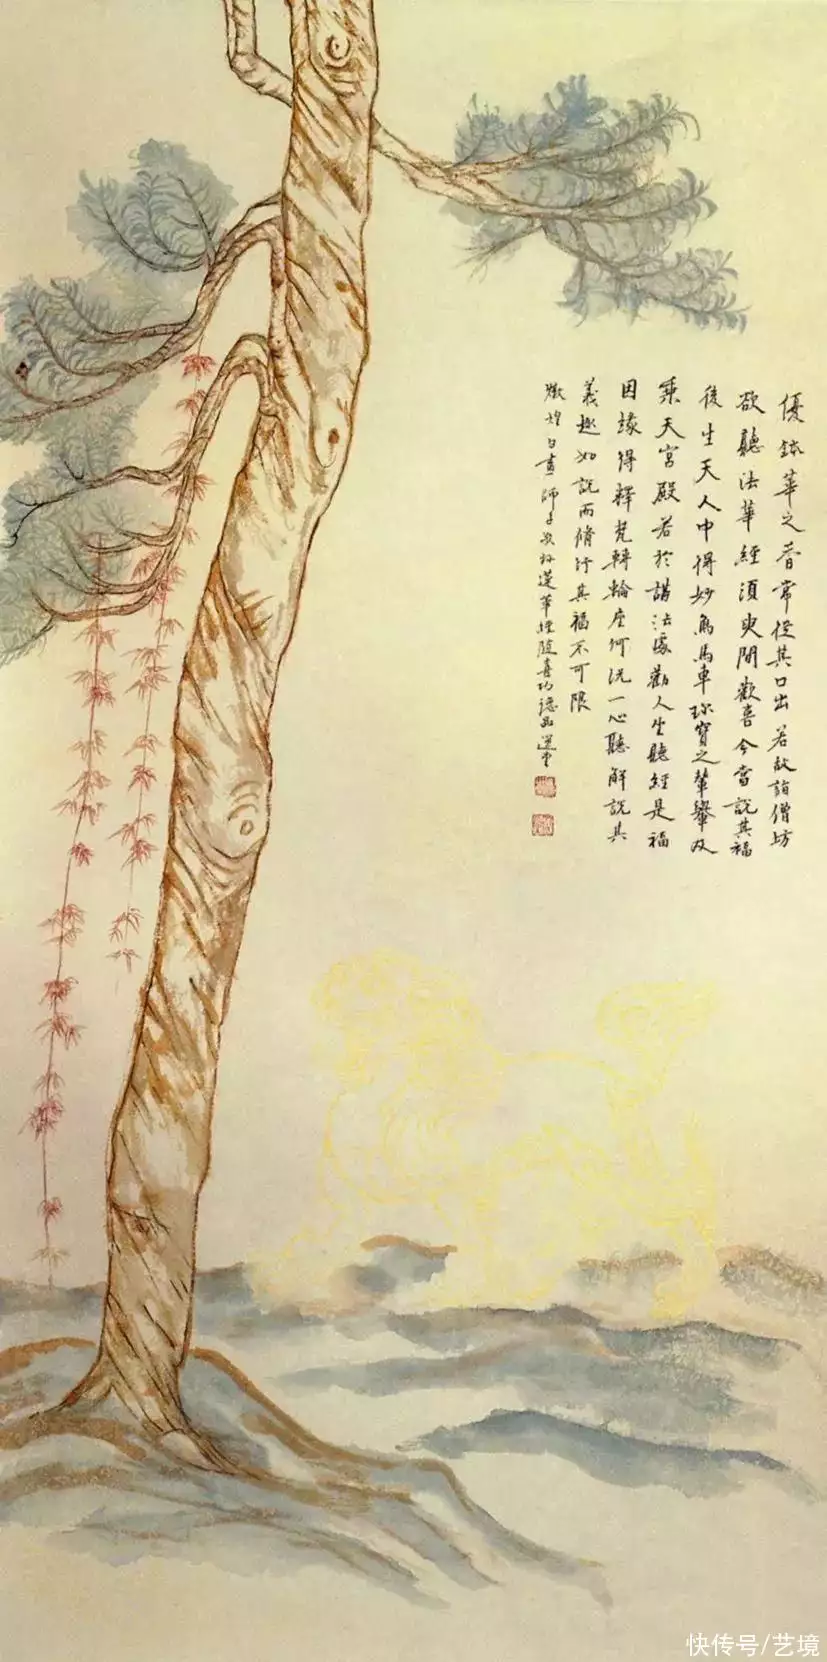 優鉢華之香常從其口出若故詣僧坊
欲聽法華經須臾聞歡喜今當說其福
後生天人中得妙象馬車珎寶之輦轝及
乘天宮殿若於講法處勸人生聽經是福
因緣得釋梵轉輪座何況一心聽解說其
義趣如說而脩行其福不可限
燉煌白畫師子蓮華經隨喜功德品
快传号/艺境